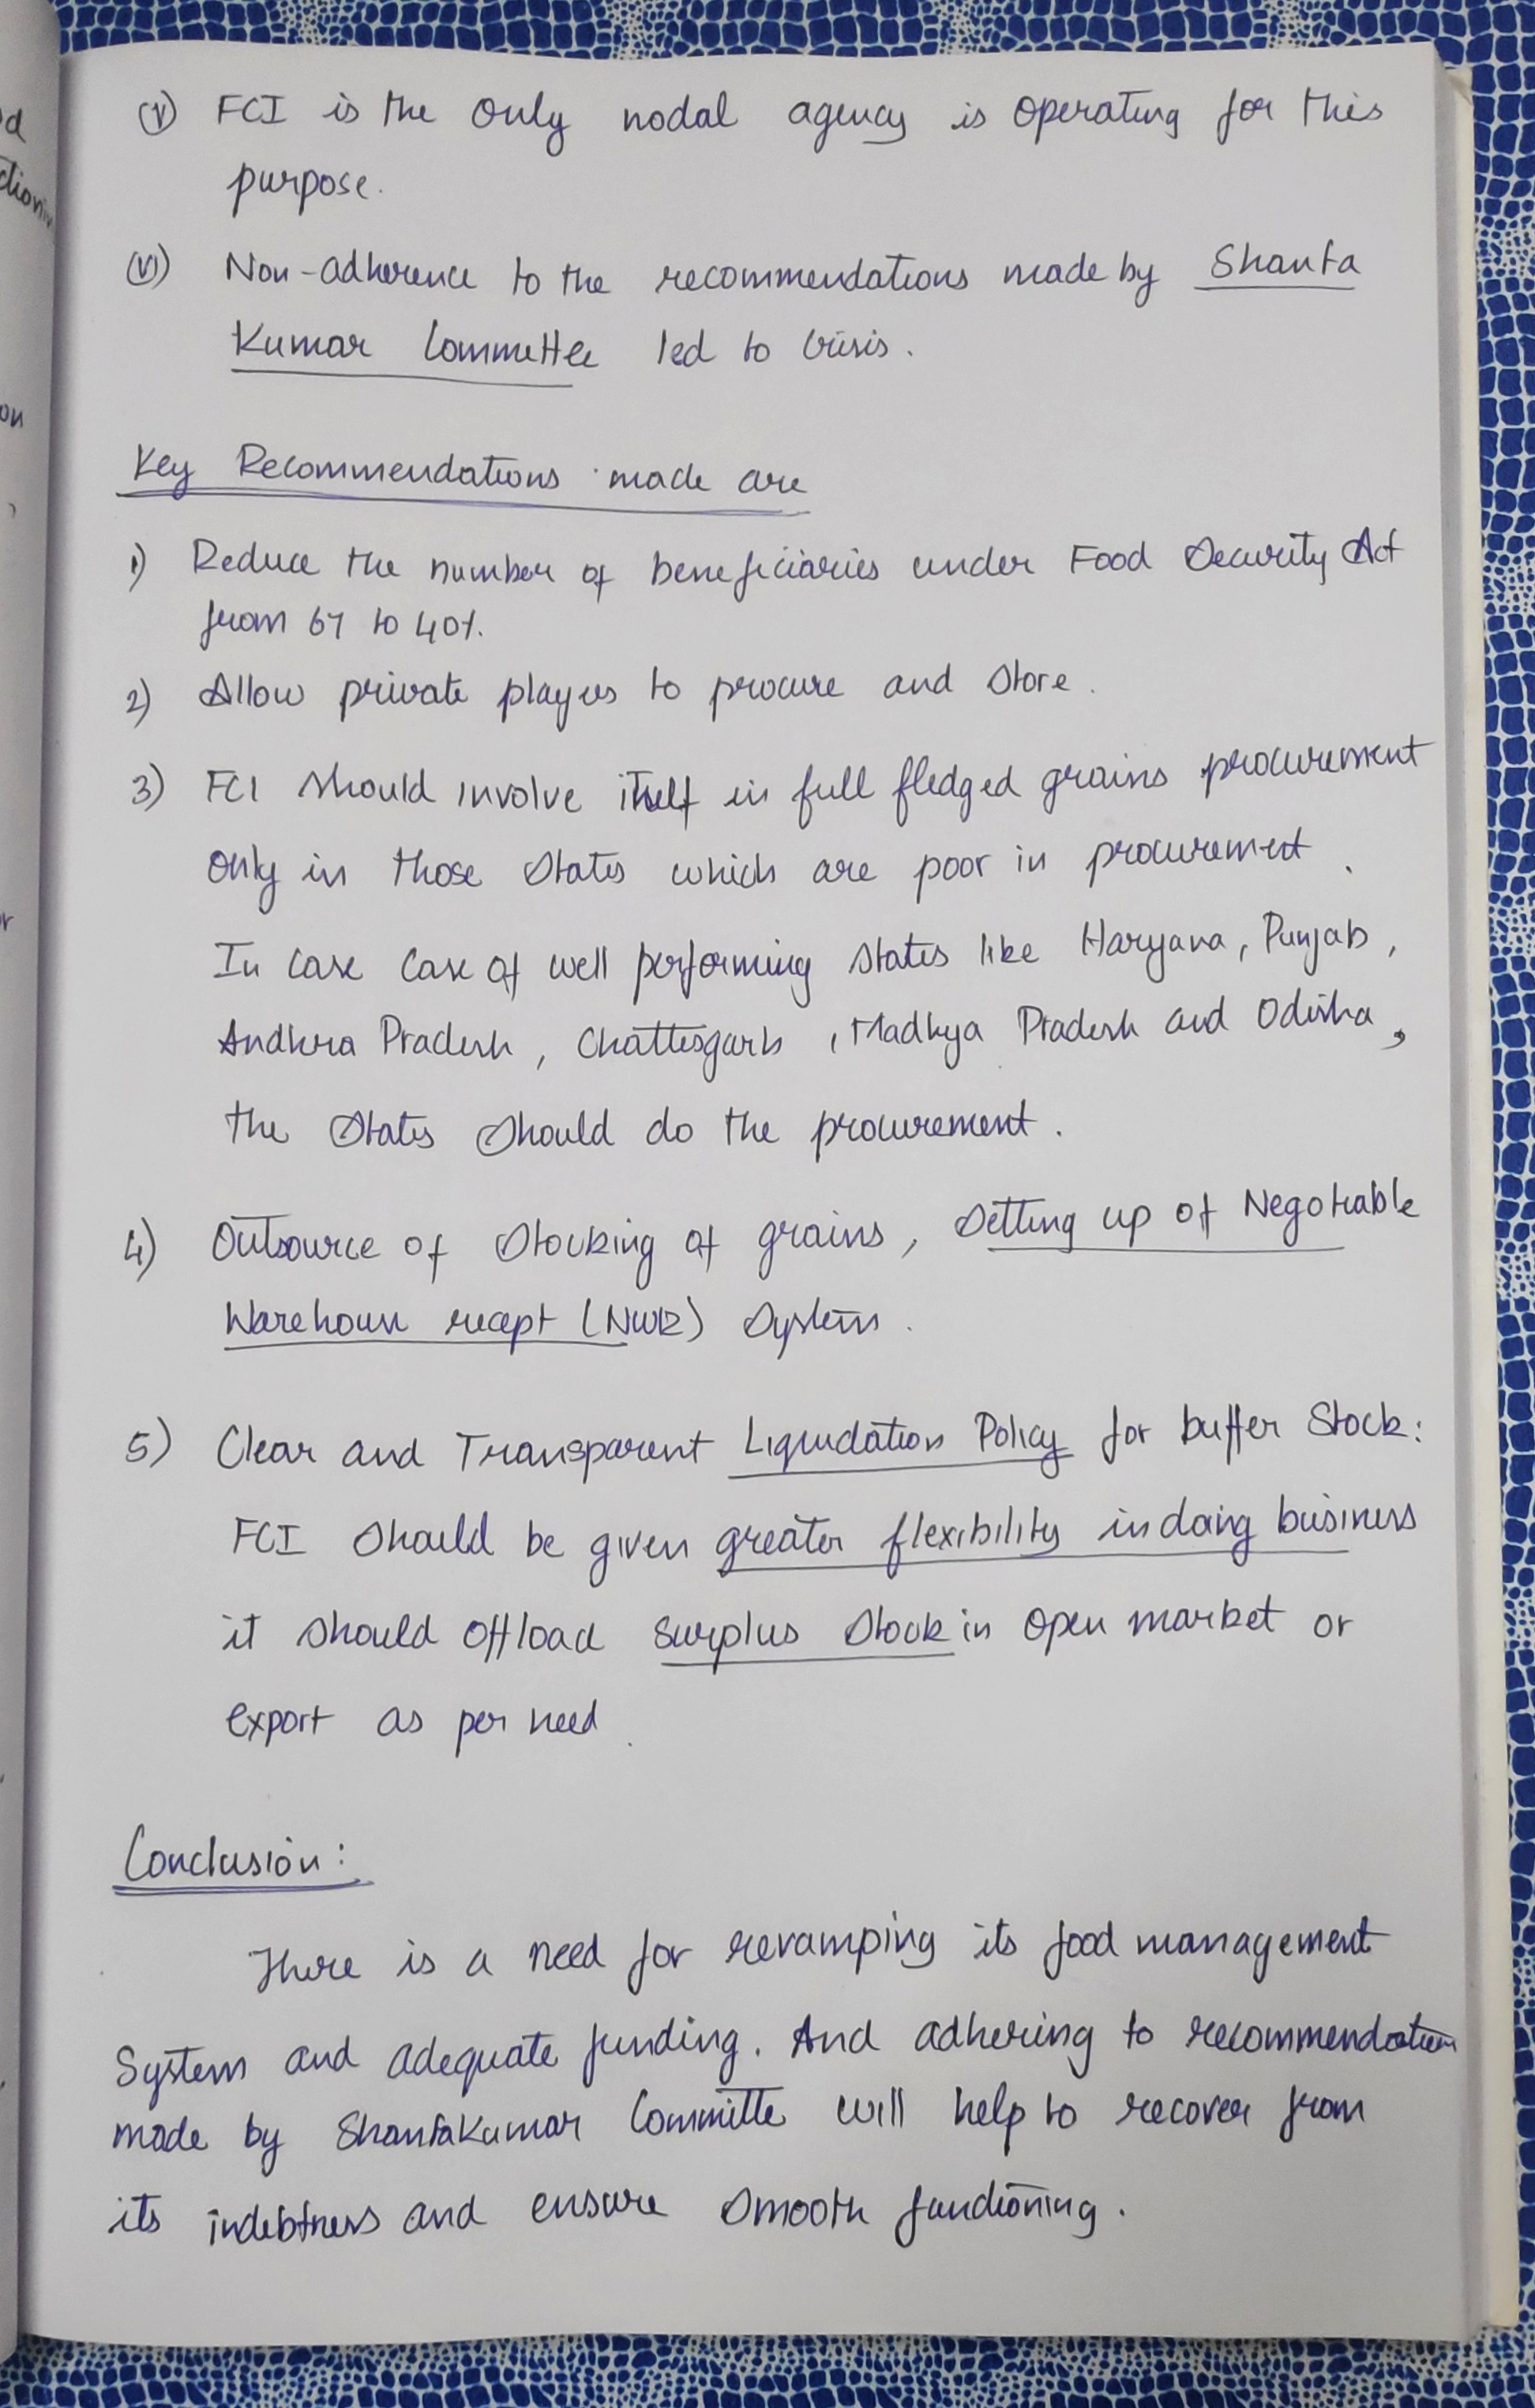 (V) FCI is the only nodal agency is operating for this
purpose.
(VI) Non-adherence to the recommendations made by Shanta
Kumar Committee led to Crisis.
Key Recommendations made are
1) Reduce the number of beneficiaries under Food Security Act
from 67 to 40%.
2) Allow private players to procure and store.
3) FCI should involve itself in full fledged grains procurement
only in those states which are poor in procurement.
In case case of well performing states like Haryana, Punjab,
Andhra Pradesh, Chattisgarh, Madhya Pradesh and Odisha,
the states should do the procurement.
4) Outsource of stocking of grains, setting up of Negotiable
Warehouse recept (NWR) system.
5) Clear and Transparent Liquidation Policy for buffer Stock:
FCI should be given greater flexibility in doing business
it should offload surplus stock in open market or
export as per need.
Conclusion:
There is a need for revamping its food management
System and adequate funding. And adhering to recommendation
made by Shantakumar Committe will help to recover from
its indebtness and ensure smooth functioning.